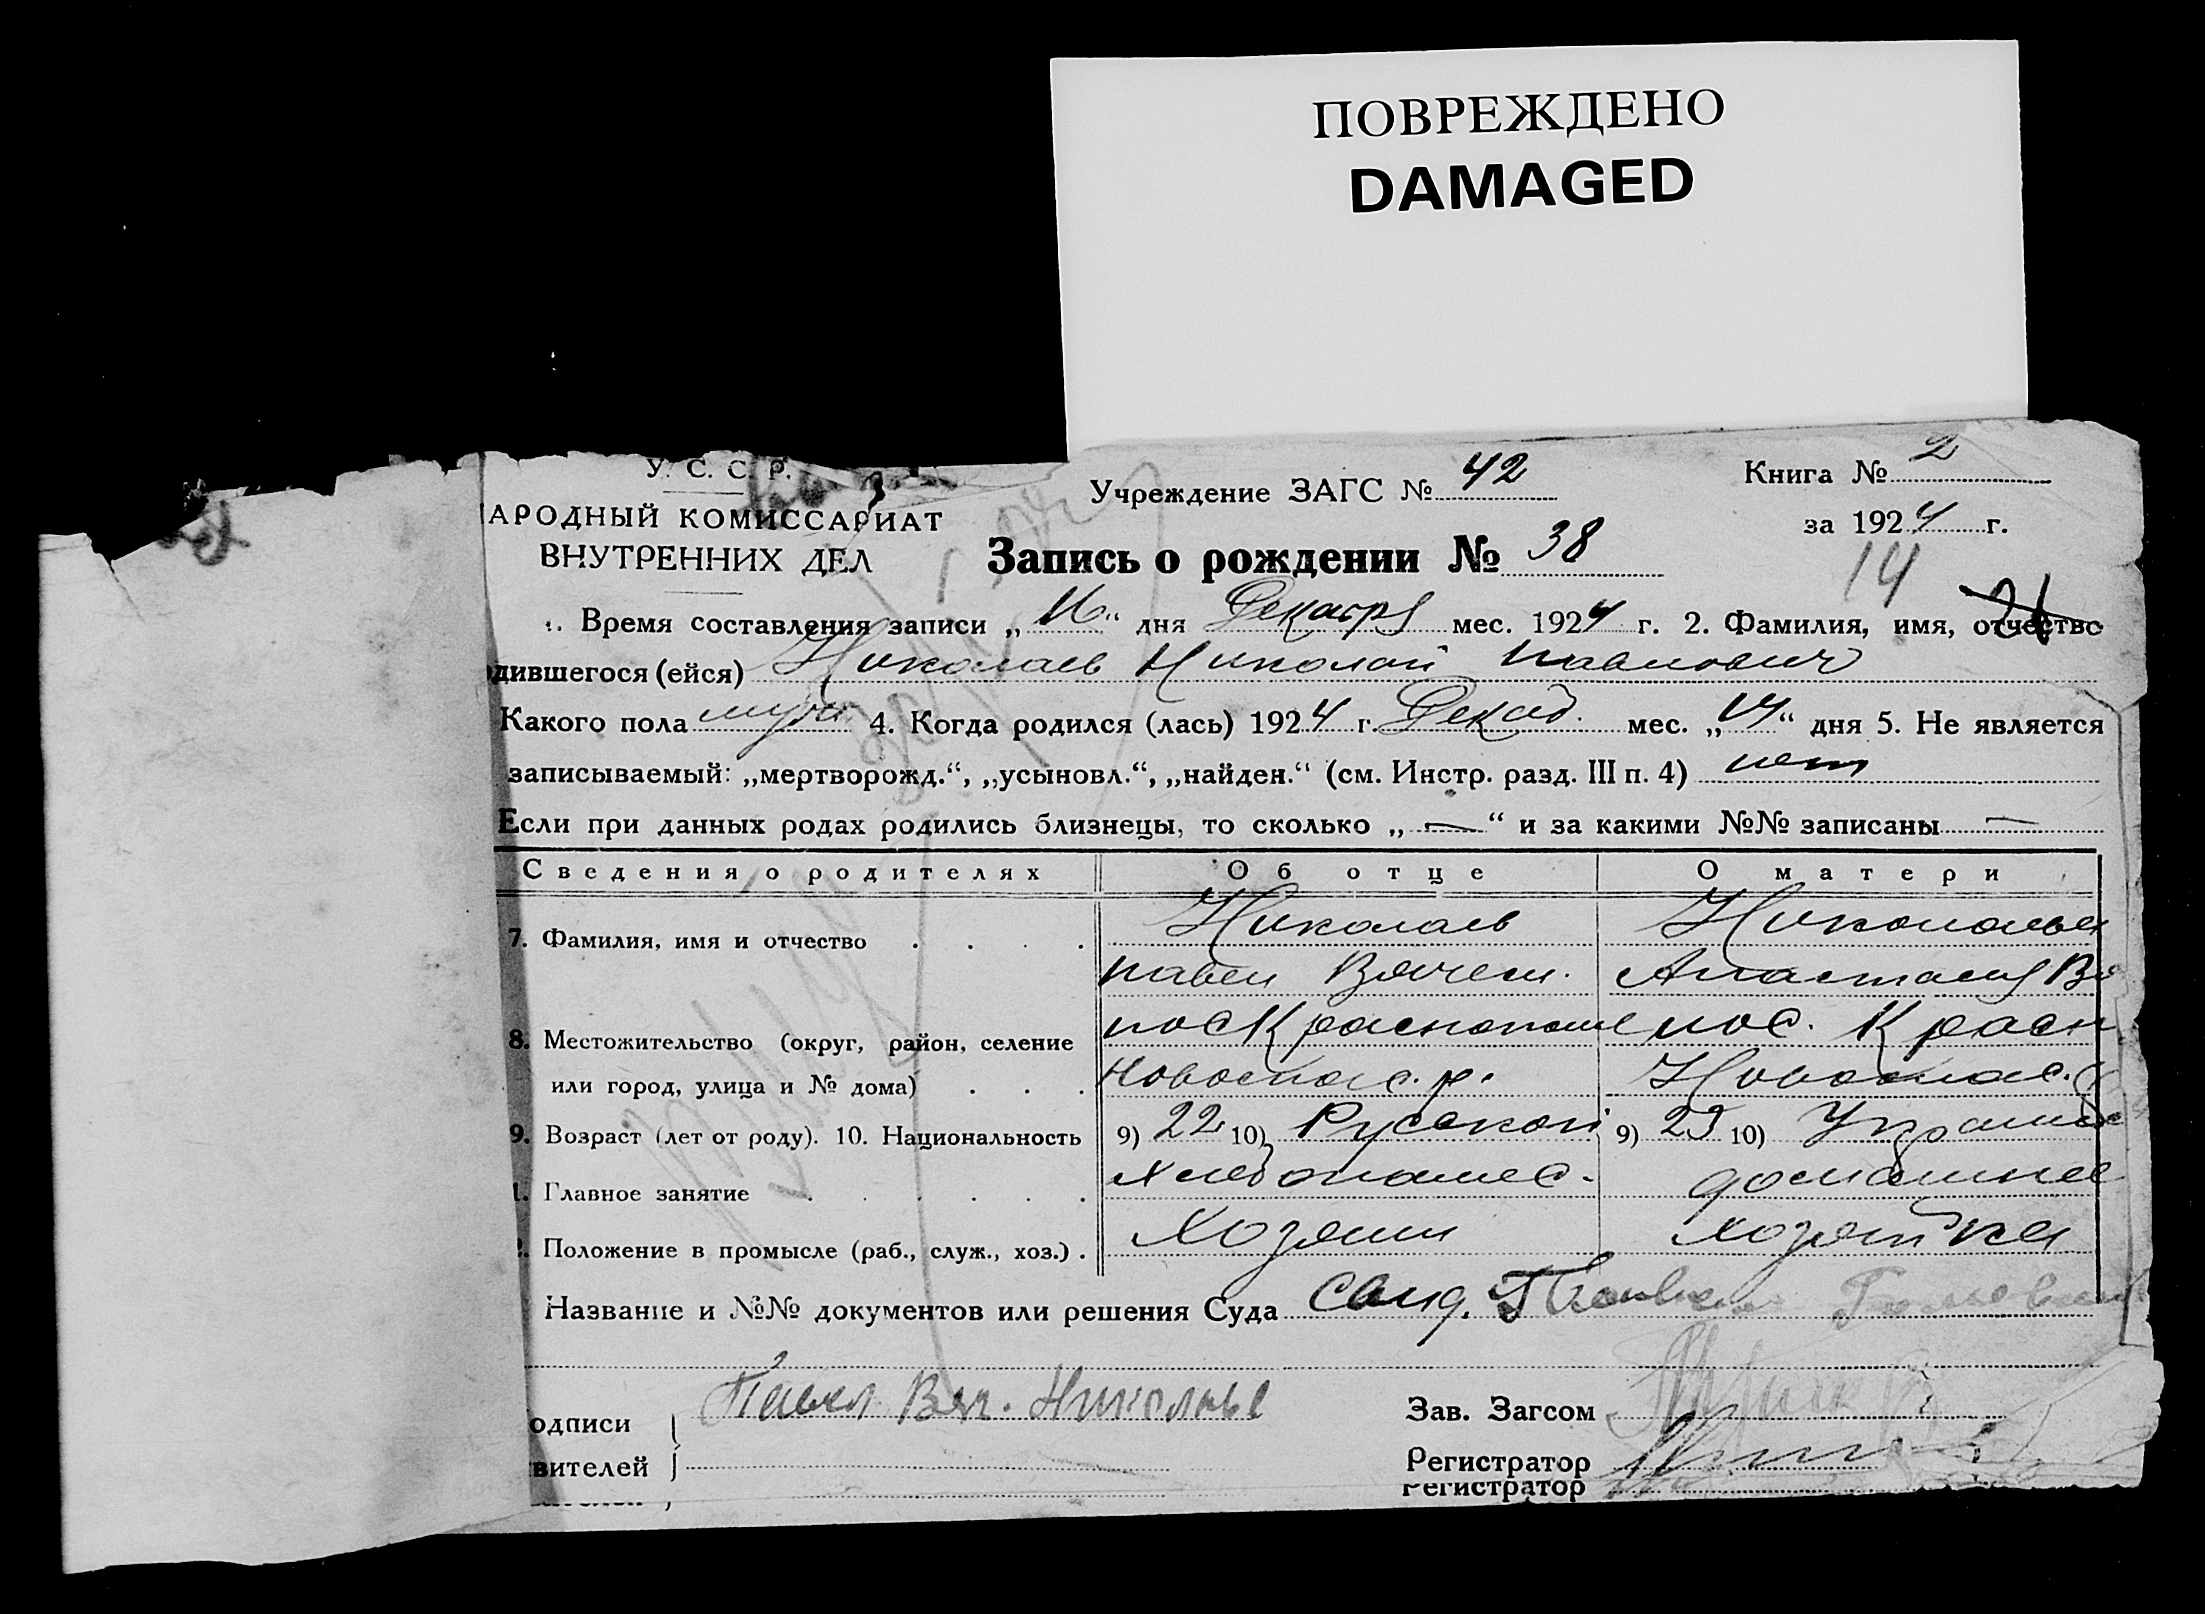 ПОВРЕЖДЕНО
DAMAGED
У. С. С. Р.
АРОДНЫЙ КОМИССАРИАТ
ВНУТРЕННИХ ДЕЛ
Учреждение ЗАГС № 42
Книга № 2
за 1924 г.
Запись о рождении № 38
14
21
Время составления записи „16“ дня Декабря мес. 1924 г. 2. Фамилия, имя, отчество
дившегося (ейся) Николаев Николай Павлович
Какого пола муж 4. Когда родился (лась) 1924 г. Декаб. мес. „14“ дня 5. Не является
записываемый: „мертворожд.“, „усыновл.“, „найден.“ (см. Инстр. разд. III п. 4) нет
Если при данных родах родились близнецы, то сколько „—“ и за какими №№ записаны —
Сведения о родителях Об отце О матери
7. Фамилия, имя и отчество . . . . Николаев Николаева
Павел Вячесл. Анастасия
8. Местожительство (округ, район, селение пос. Краснополье пос. Красн
или город, улица и № дома) . . . Новоспас. р. Новоспас. р
9. Возраст (лет от роду). 10. Национальность 9) 22 10) Русский 9) 23 10) Украин
1. Главное занятие . . . . . . Хлебопашес. домашнее
Положение в промысле (раб., служ., хоз.) . Хозяин хозяйка
Название и №№ документов или решения Суда
одписи
вителей
Павел Вяч. Николаев
Зав. Загсом
Регистратор
Регистратор